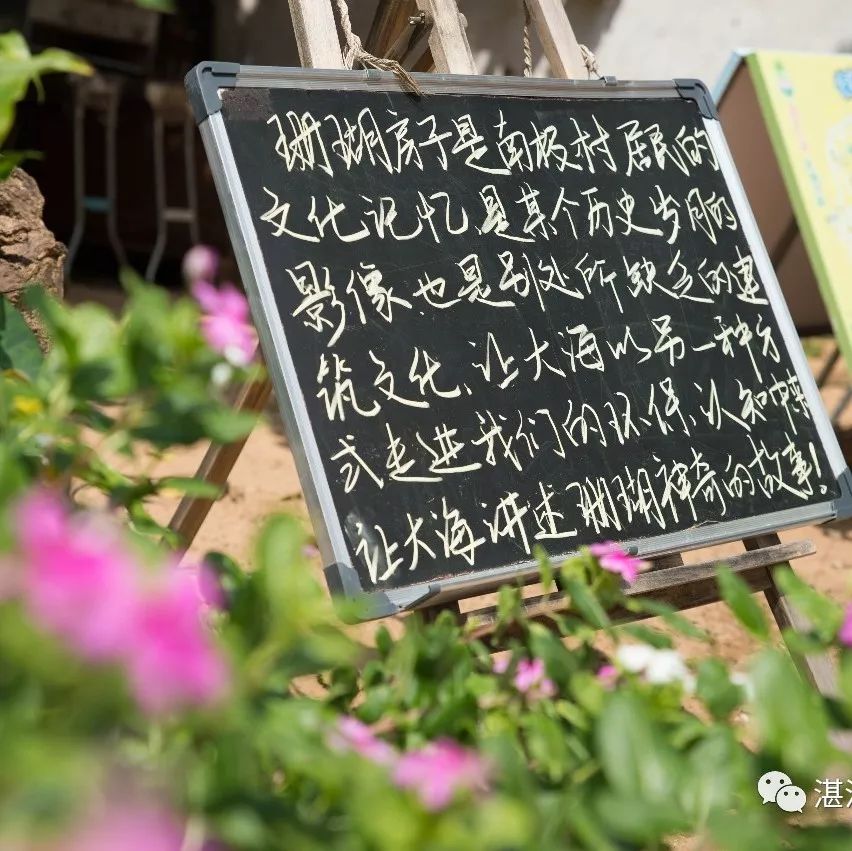 珊瑚房子是南极村居民的
文化记忆.是某个历史岁月的
影像.也是别处所缺乏的建
筑文化、让大海以另一种方
式走进我们的环保、认知中来
让大海讲述珊瑚神奇的故事!
湛